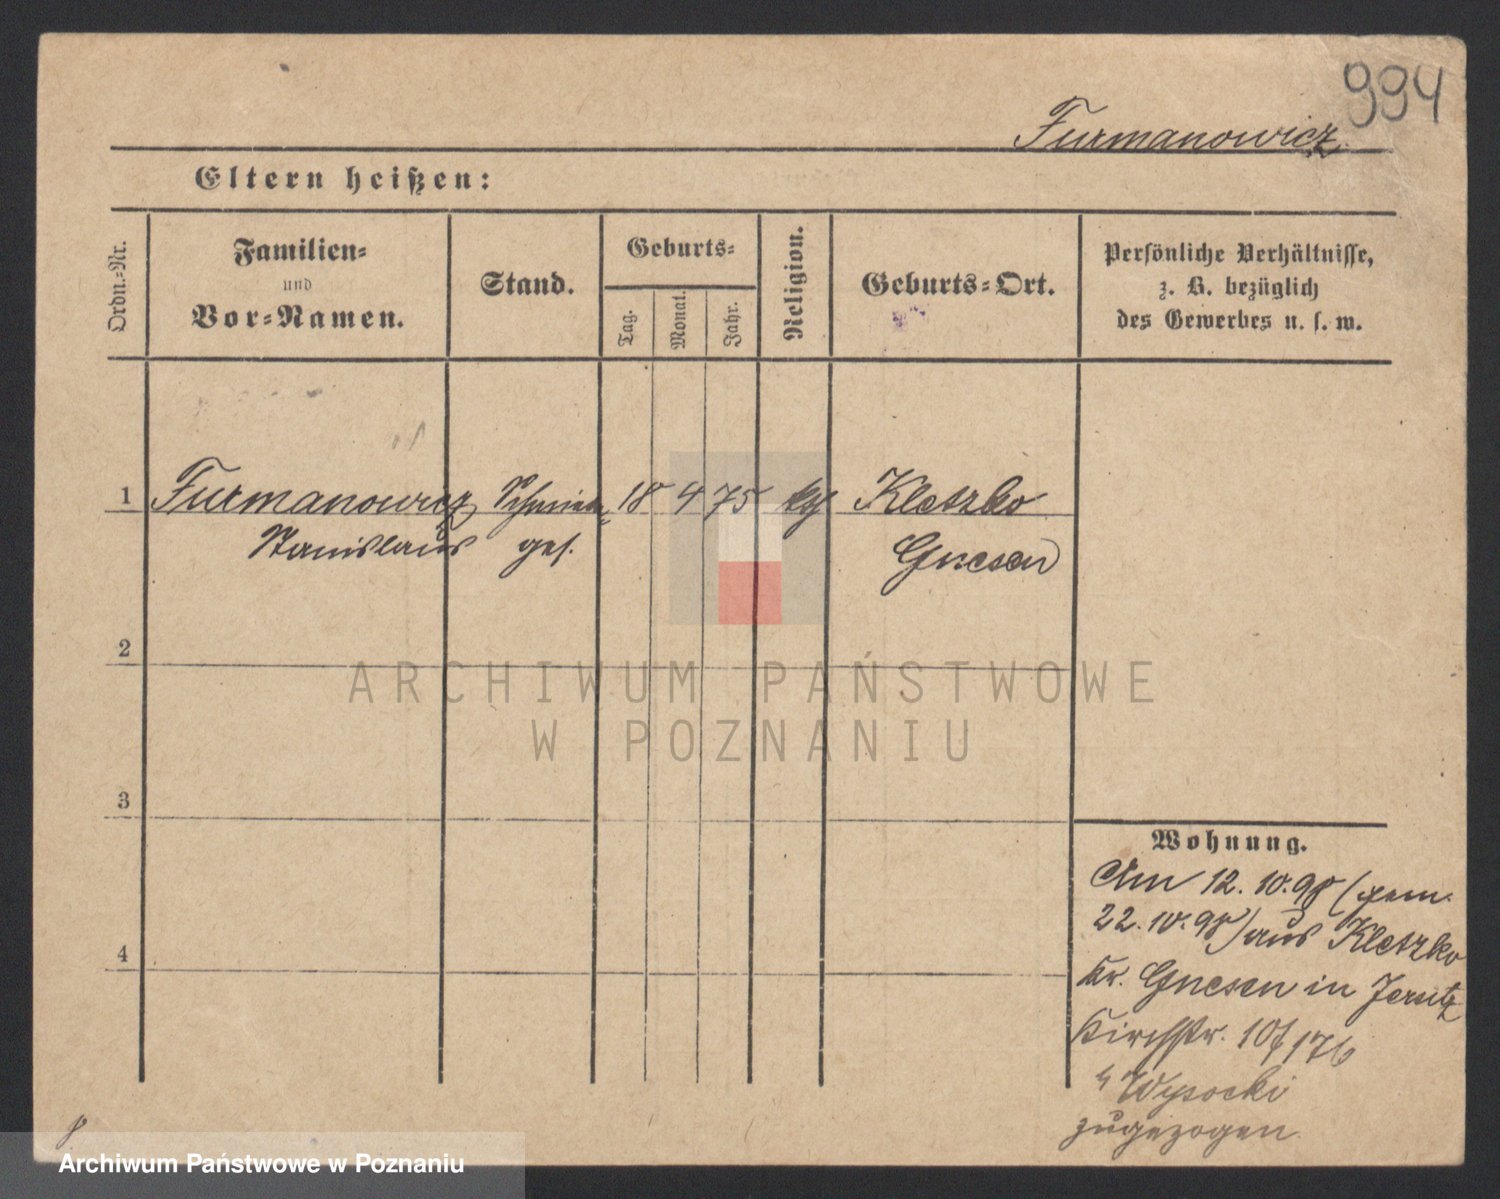 994
Furmanowicz
Eltern heißen:
Ordn.=Nr.
Familien=
und
Vor=Namen.
Stand.
Geburts=
Tag.
Monat.
Jahr.
Religion.
Geburts=Ort.
Persönliche Verhältnisse,
z. B. bezüglich
des Gewerbes u. s. w.
1 Furmanowicz 18 4 75 Kletzko
Stanislaus ges. Gnesen
2
ARCHIWUM PAŃSTWOWE
W POZNANIU
3
Wohnung.
Am 12.10.98 (gem.
22.10.98) aus Kletzko
4
Kr. Gnesen in Jersitz
Kirchstr.
Wysocki
zugezogen.
Archiwum Państwowe w Poznaniu